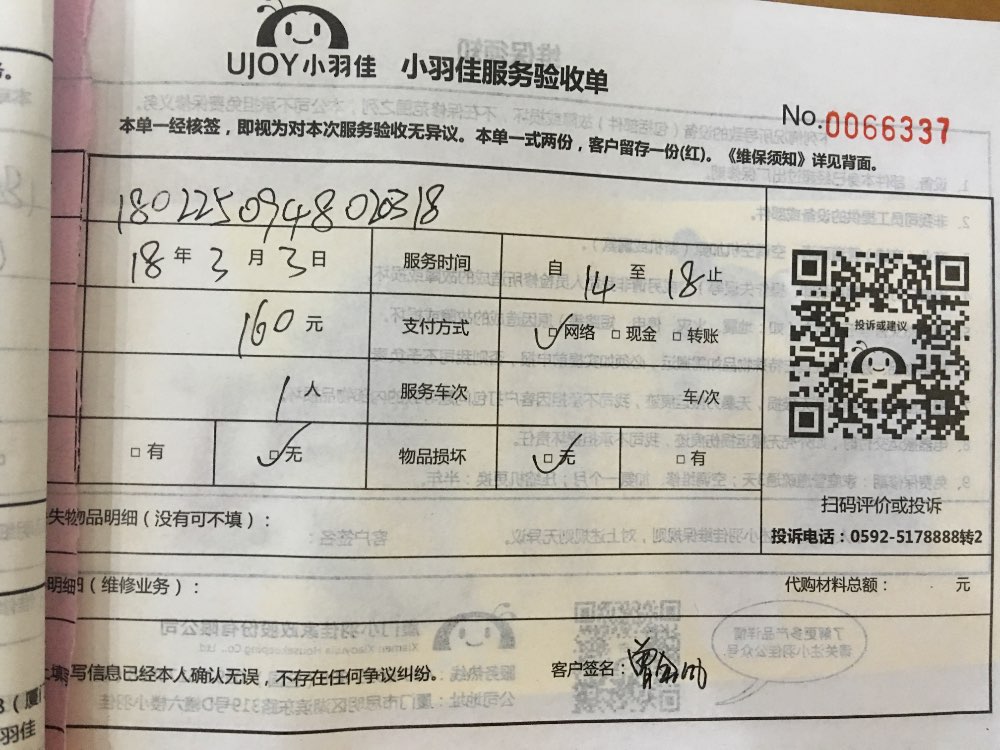 UJOY小羽佳 小羽佳服务验收单
No.0066337
本单一经核签，即视为对本次服务验收无异议。本单一式两份，客户留存一份(红)。《维保须知》详见背面。
18年3月3日 服务时间 自14至18止
160元 支付方式 ☑网络 □现金 □转账
投诉或建议
1人 服务车次 车/次
□有 ☑无 物品损坏 ☑无 □有
扫码评价或投诉
失物品明细（没有可不填）：
投诉电话：0592-5178888转2
明细（维修业务）： 代购材料总额： 元
填写信息已经本人确认无误，不存在任何争议纠纷。 客户签名：
羽佳